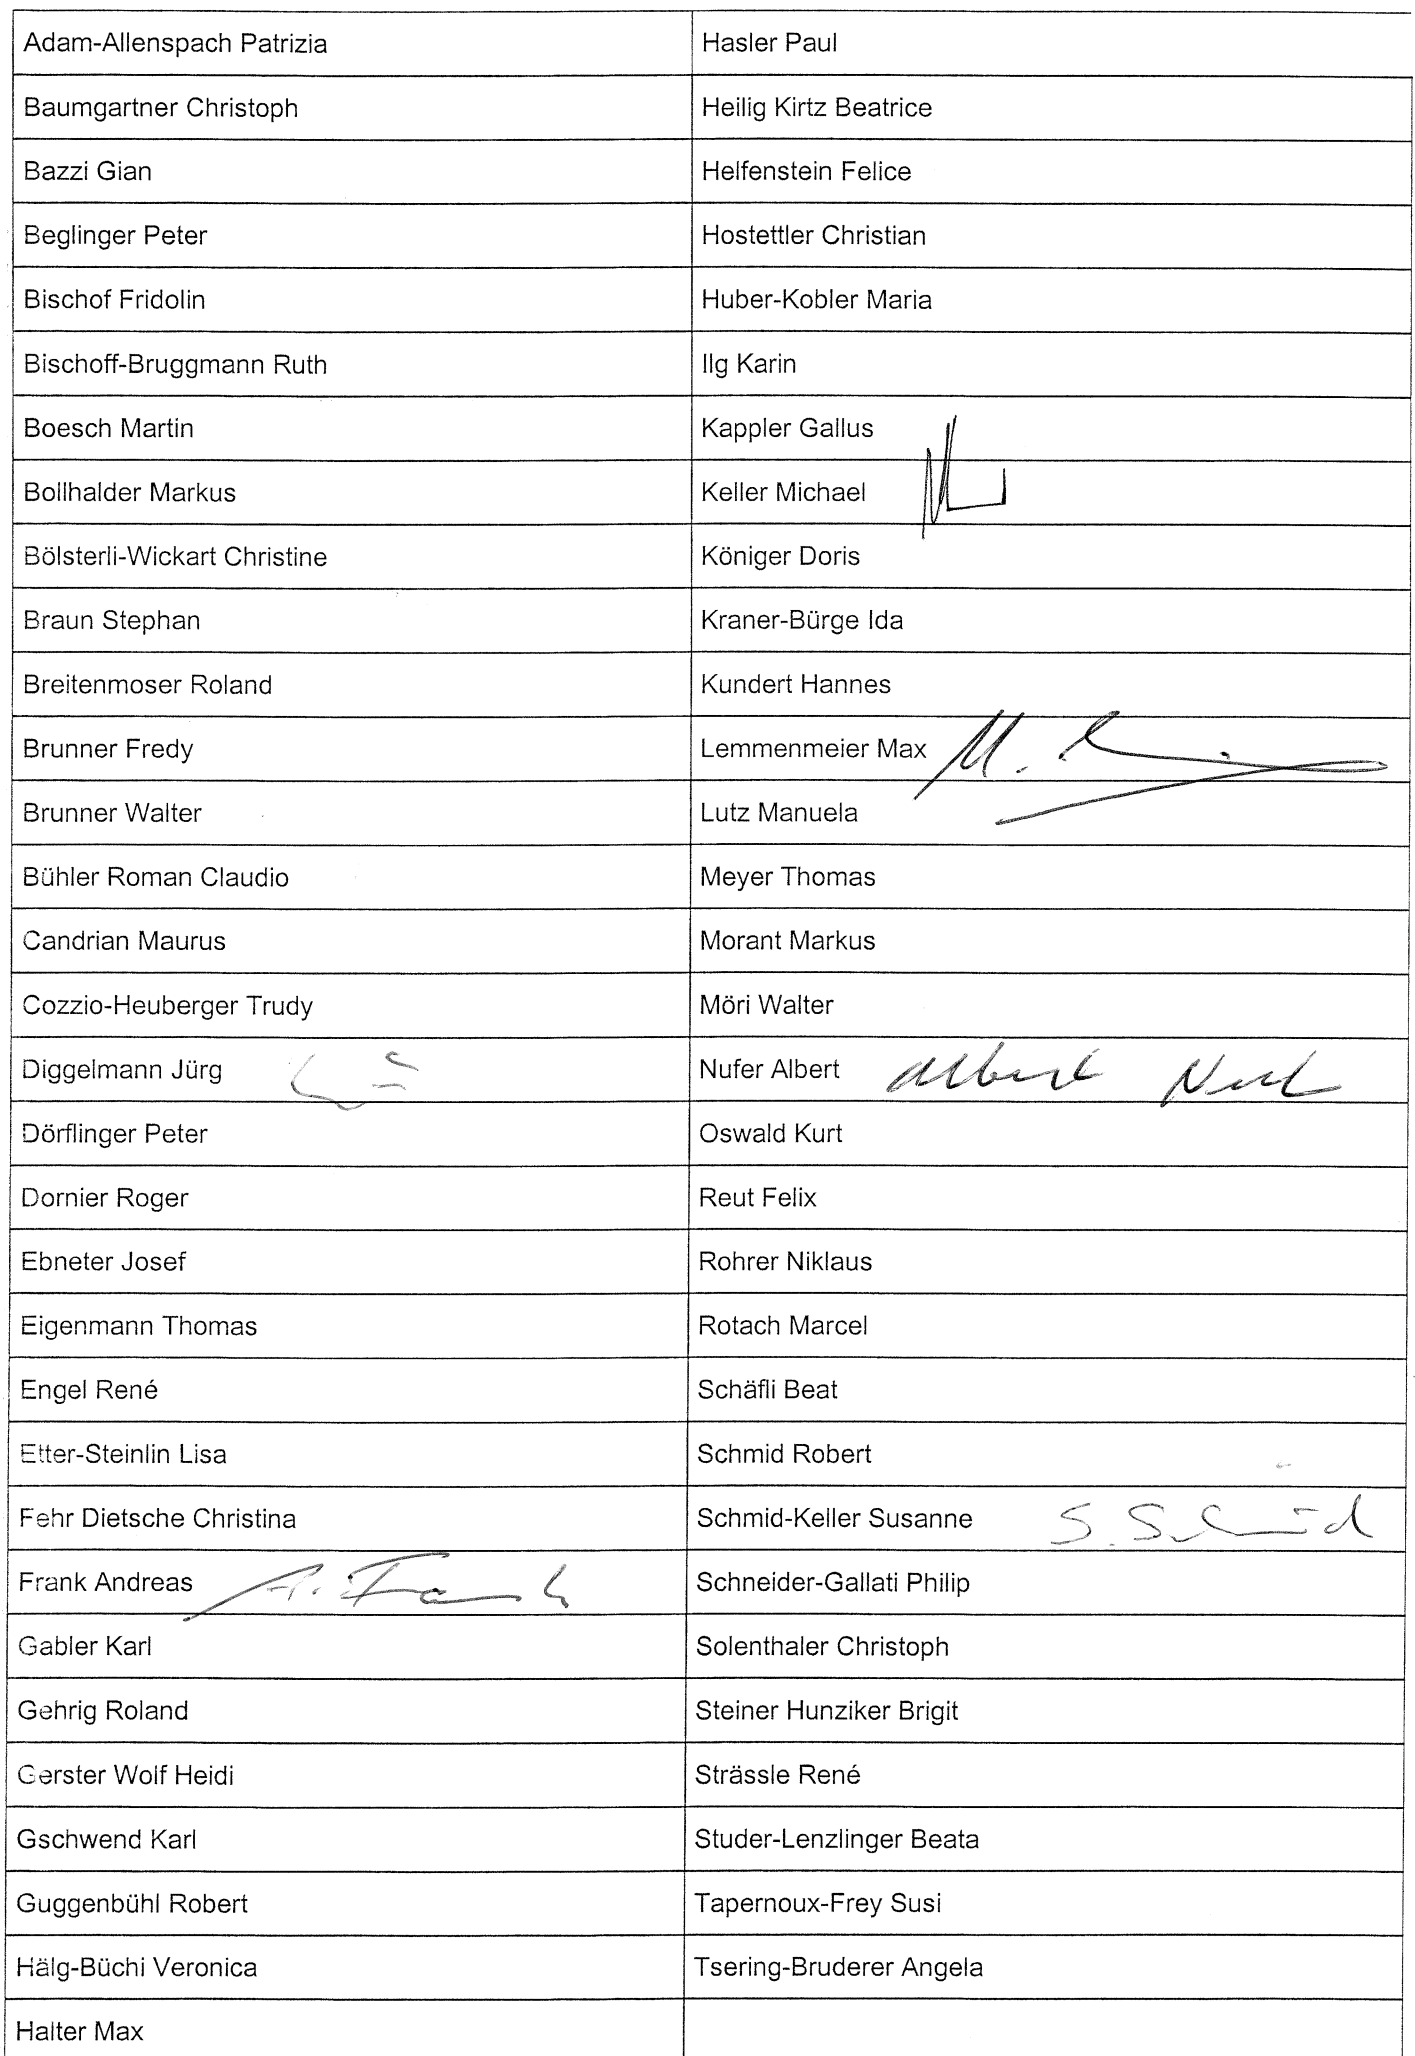 Adam-Allenspach Patrizia
Hasler Paul
Baumgartner Christoph
Heilig Kirtz Beatrice
Bazzi Gian
Helfenstein Felice
Beglinger Peter
Hostettler Christian
Bischof Fridolin
Huber-Kobler Maria
Bischoff-Bruggmann Ruth
Ilg Karin
Boesch Martin
Kappler Gallus
Bollhalder Markus
Keller Michael
Bölsterli-Wickart Christine
Königer Doris
Braun Stephan
Kraner-Bürge Ida
Breitenmoser Roland
Kundert Hannes
Brunner Fredy
Lemmenmeier Max
Brunner Walter
Lutz Manuela
Bühler Roman Claudio
Meyer Thomas
Candrian Maurus
Morant Markus
Cozzio-Heuberger Trudy
Möri Walter
Diggelmann Jürg
Nufer Albert Albert
Dörflinger Peter
Oswald Kurt
Dornier Roger
Reut Felix
Ebneter Josef
Rohrer Niklaus
Eigenmann Thomas
Rotach Marcel
Engel René
Schäfli Beat
Etter-Steinlin Lisa
Schmid Robert
Fehr Dietsche Christina
Schmid-Keller Susanne S. Schmid
Frank Andreas A. Frank
Schneider-Gallati Philip
Gabler Karl
Solenthaler Christoph
Gehrig Roland
Steiner Hunziker Brigit
Gerster Wolf Heidi
Strässle René
Gschwend Karl
Studer-Lenzlinger Beata
Guggenbühl Robert
Tapernoux-Frey Susi
Hälg-Büchi Veronica
Tsering-Bruderer Angela
Halter Max